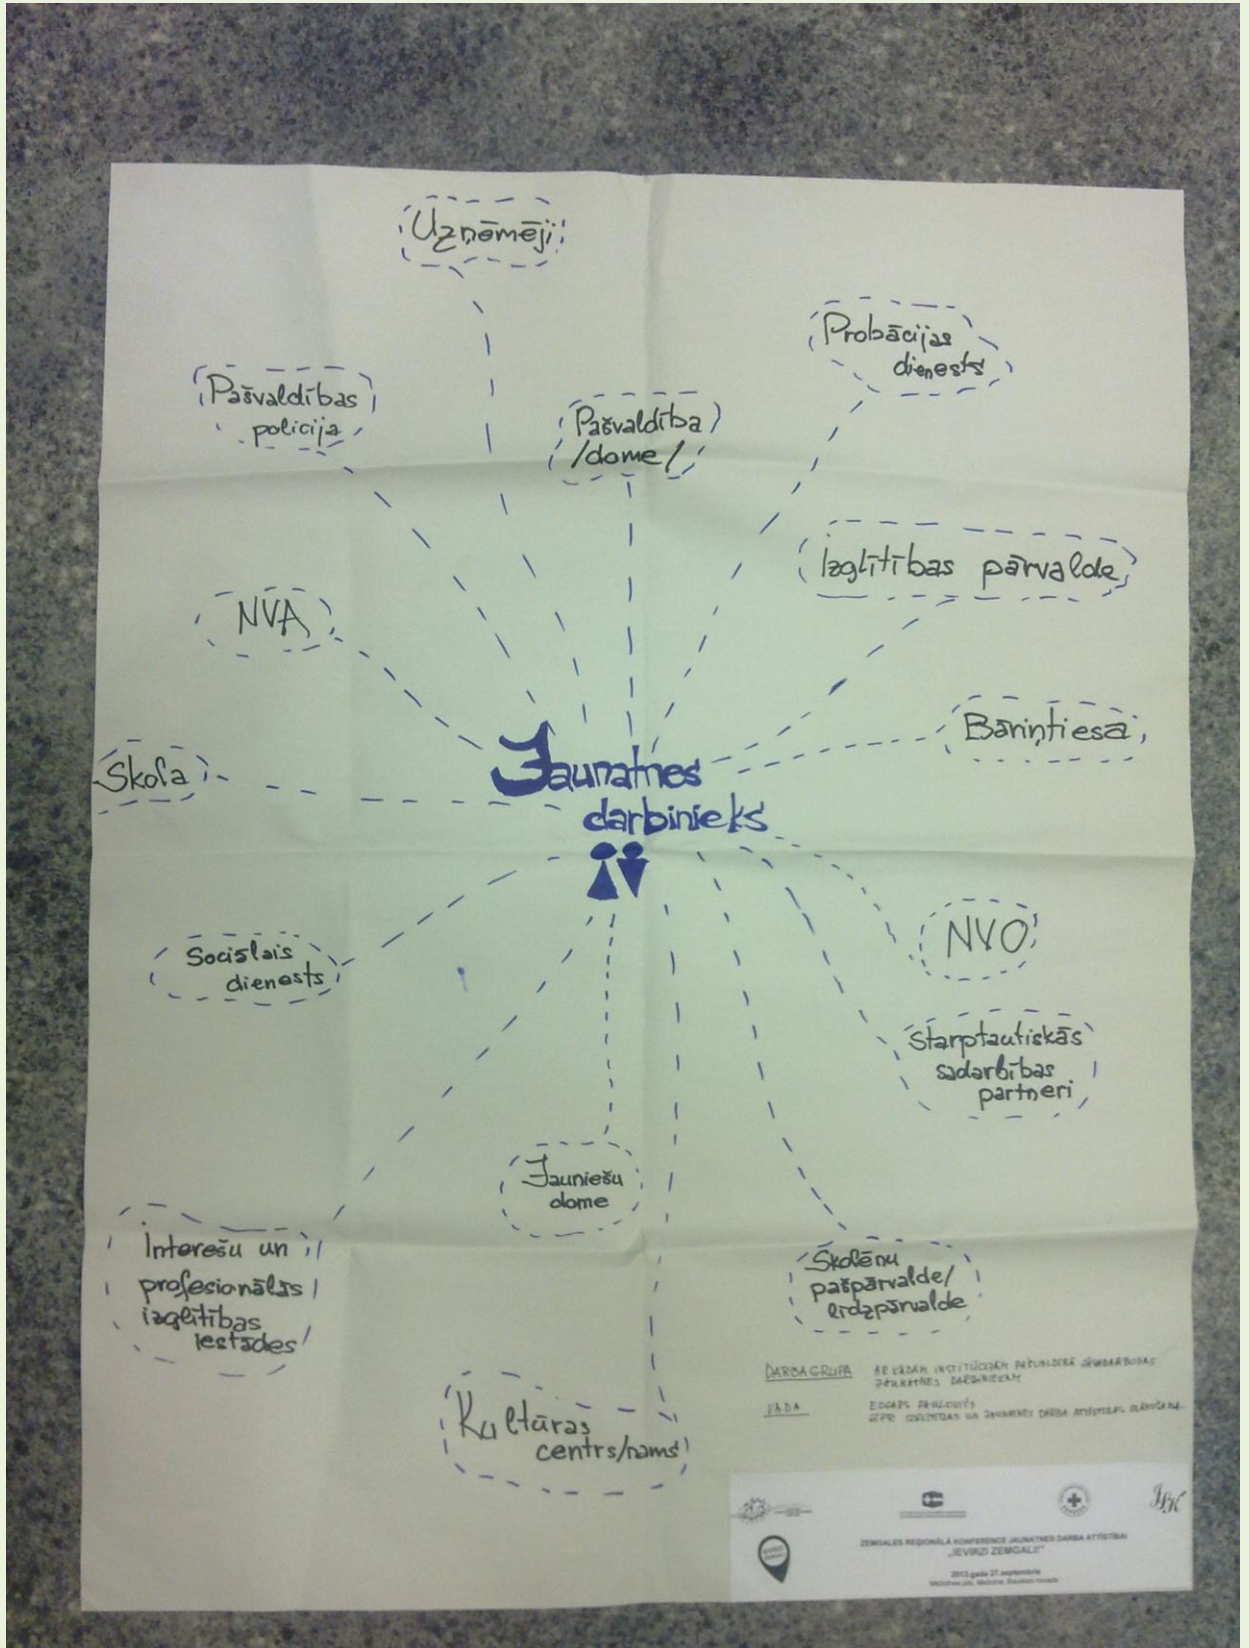 Uzņēmēji
Probācijas
dienests
Pašvaldības
policija
Pašvaldība
/dome/
Izglītības pārvalde
NVA
Bāriņtiesa
Skola
Jaunatnes
darbinieks
NVO
Sociālais
dienests
Starptautiskās
sadarbības
partneri
Jauniešu
dome
Interešu un
profesionālās
izglītības
iestādes
Skolēnu
pašpārvalde/
līdzpārvalde
Kultūras
centrs/nams
DARBA GRUPA
AR KĀDĀM INSTITŪCIJĀM PAŠVALDĪBĀ
JAUNATNES DARBINIEKAM
VADA
ZEMGALES REĢIONĀLĀ KONFERENCE JAUNATNES DARBA ATTĪSTĪBAI
„IEVIRZI ZEMGALI!”
2013.gada 27.septembris
Mežotnes pils, Mežotne, Bauskas novads